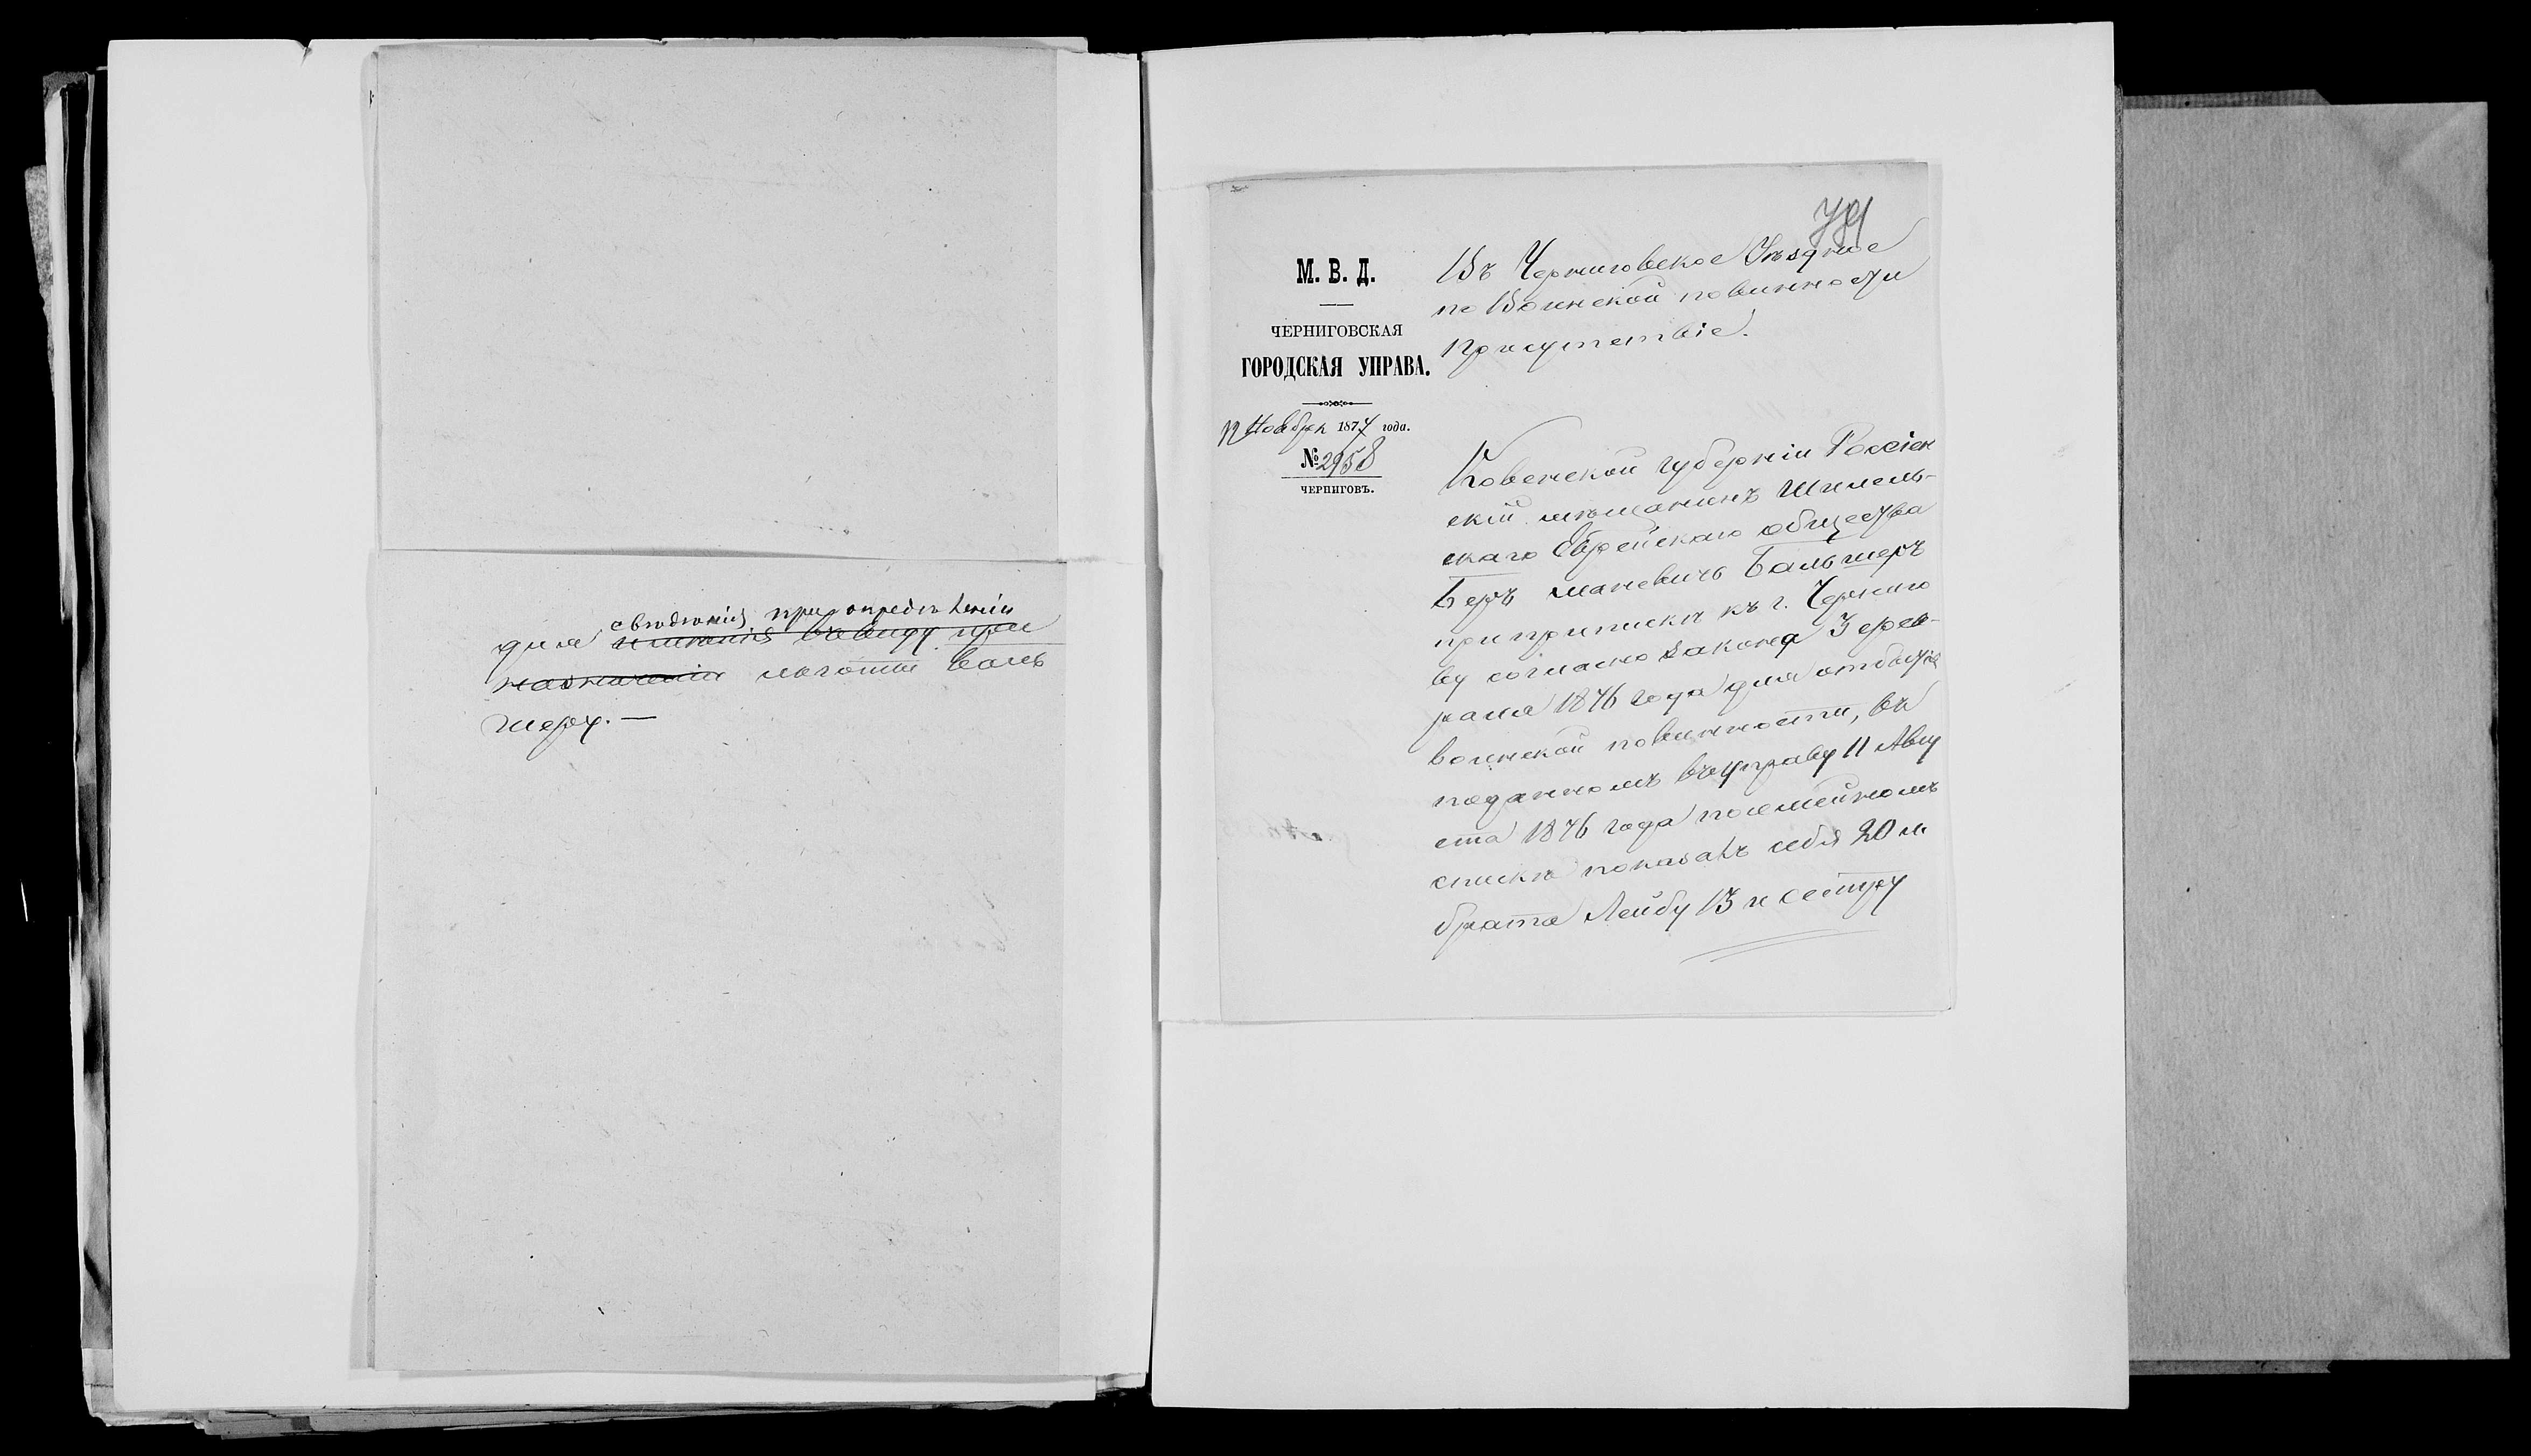 для свѣдѣнія при опредѣленіи
имѣнія въ виду при
назначеніи льготы Валь
меру. —
М. В. Д.
ЧЕРНИГОВСКАЯ
ГОРОДСКАЯ УПРАВА.
12 Ноября 1877 года.
№ 2958
ЧЕРНИГОВЪ.
Въ Черниговское Уѣздное
по Воинской повинности
присутствіе.
Ковенской губерніи Россіен
скій мѣщанинъ Шилель-
скаго Еврейскаго общества
Беръ Маневичъ Бальмеръ
при припискѣ къ г. Черниго
ву согласно закона 3 Фев-
раля 1876 года для отбытія
воинской повинности, въ
поданномъ въ управу 11 Авгу
ста 1876 года посемейномъ
спискѣ показалъ себя 20 л.
брата Лейбу 13 и сестру